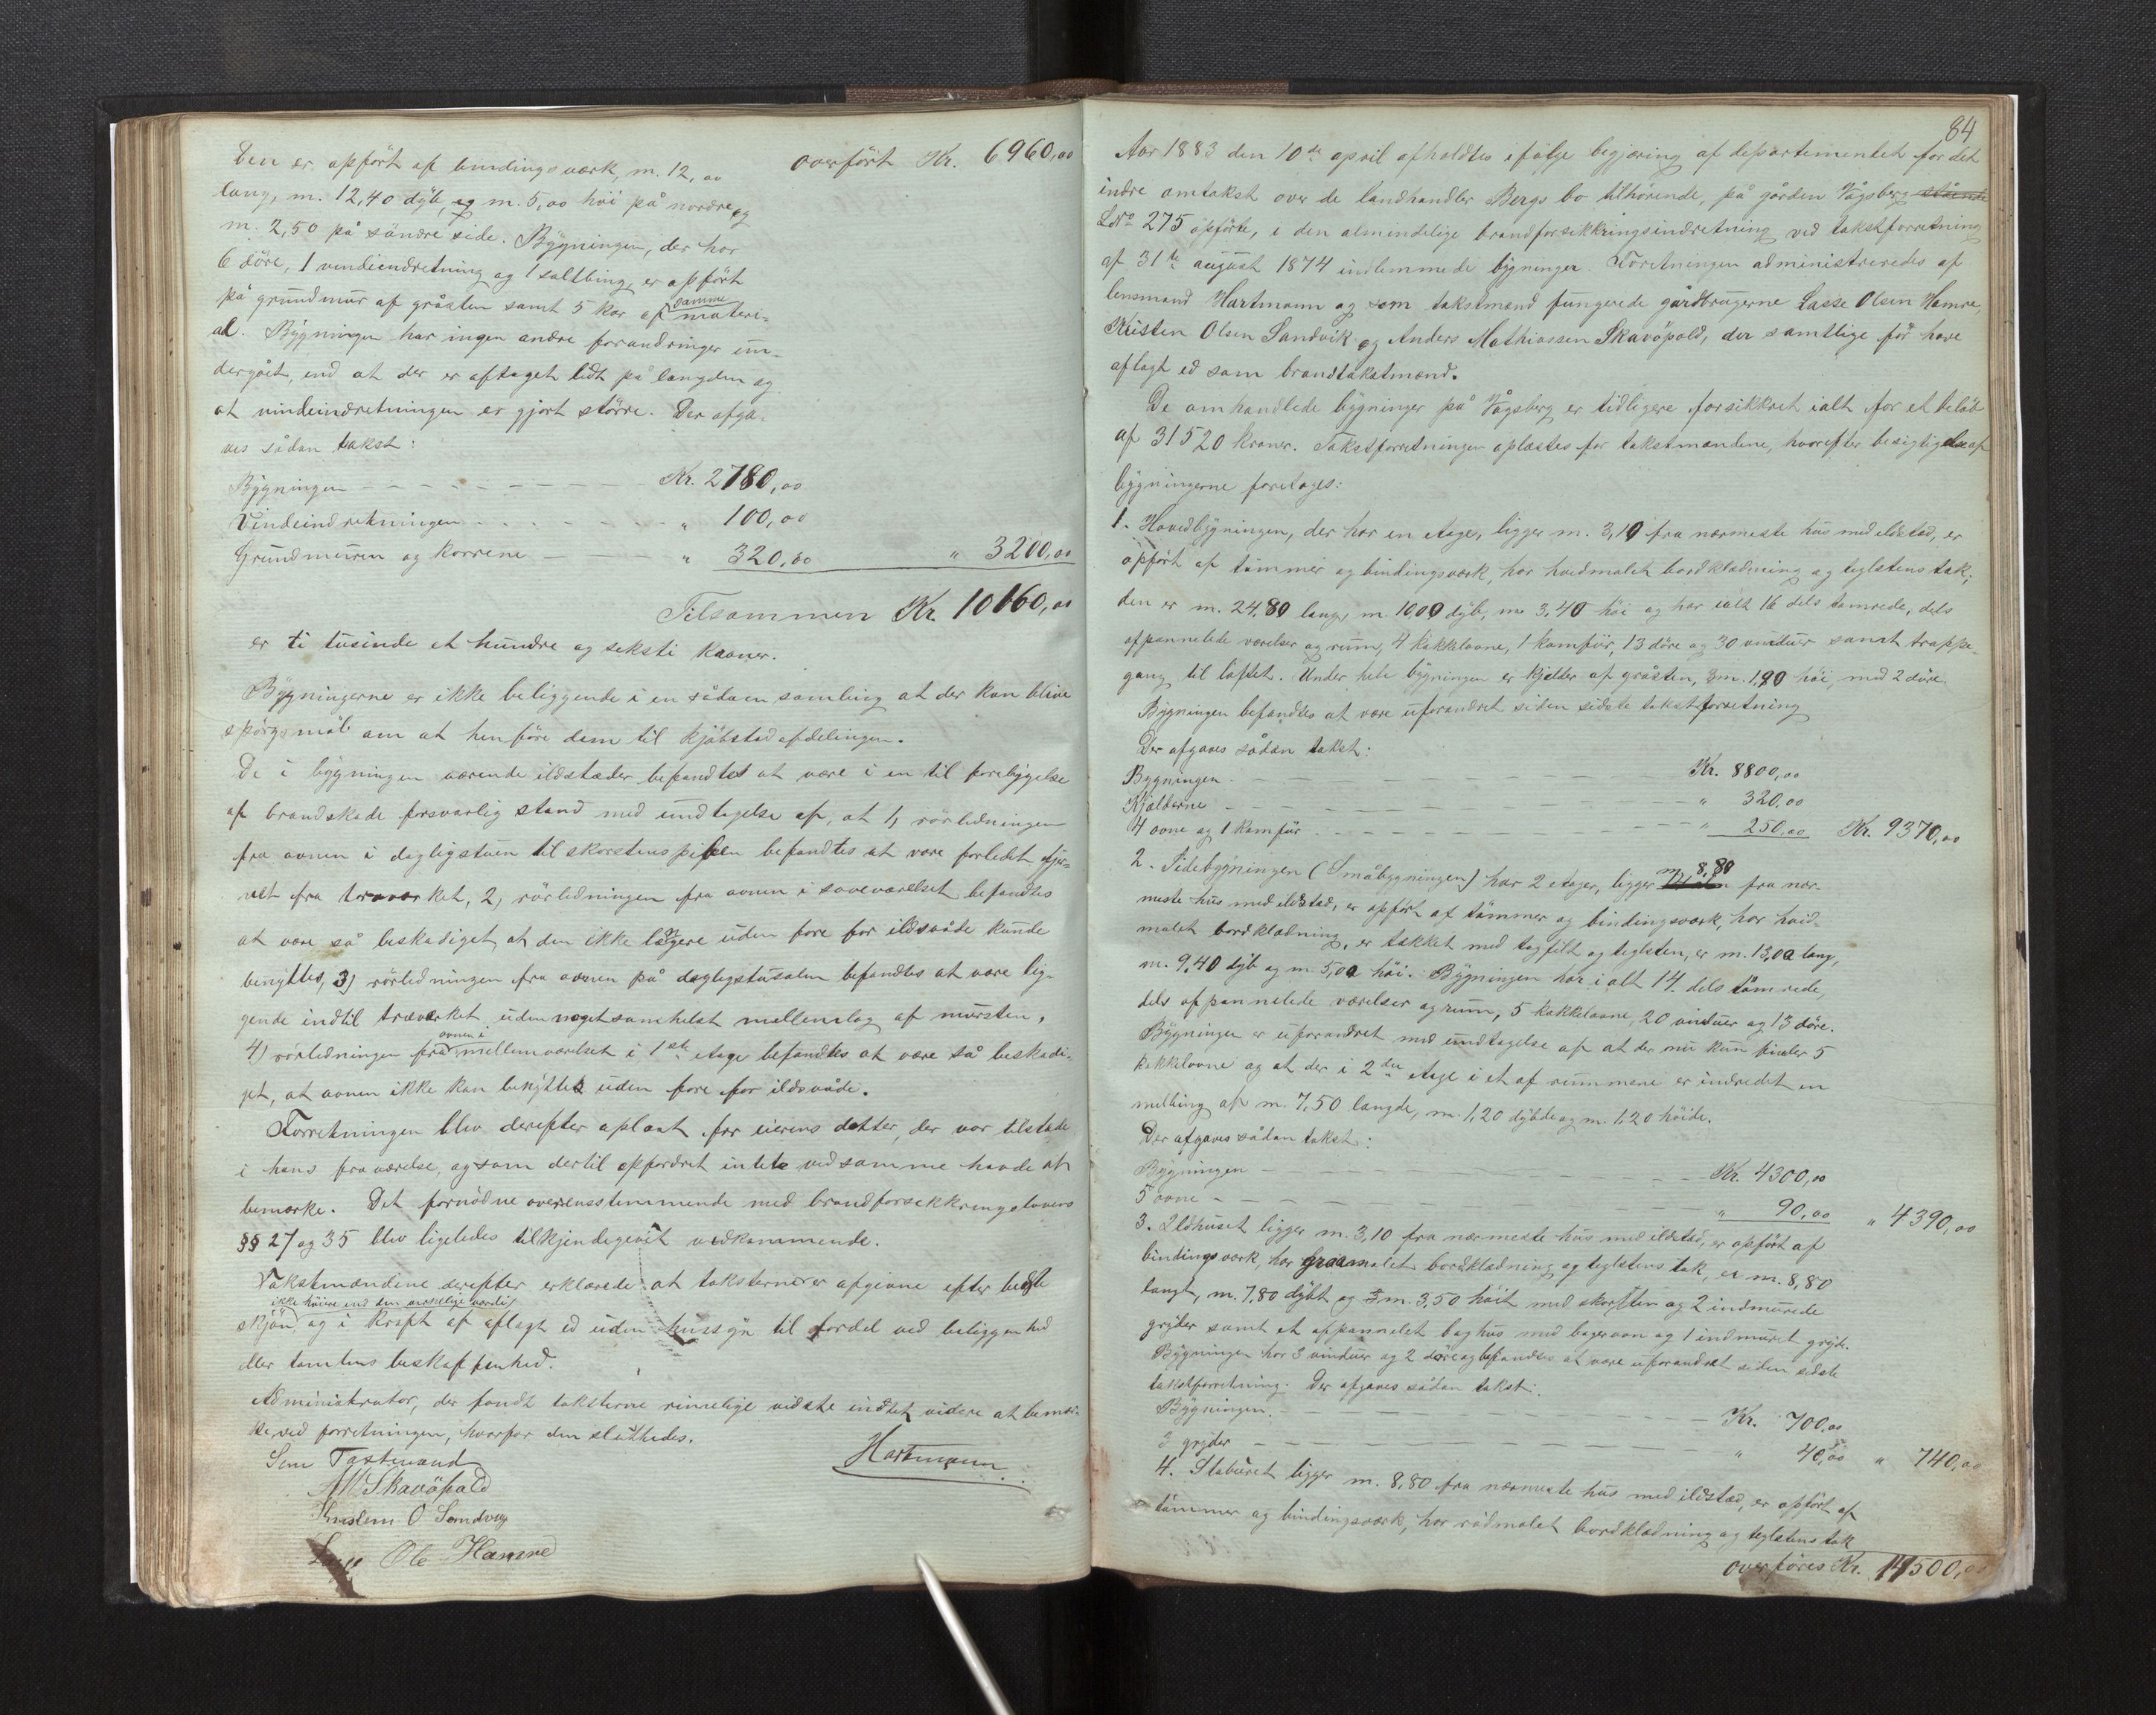 overført Kr. 6960,00
Den er opført af bindingsværk, m. 12,00
lang, m. 12,40 dyb, og m. 5,00 høi på nordre og
m. 2,50 på søndre side. Bygningen, der har
6 døre, 1 vindeindretning og 1 saltbing, er opført
på grundmur af gråsten samt 5 kar af samme materi-
al. Bygningen har ingen andre forandringer un-
dergået, end at der er aftaget lidt på længden og
at vindeindretningen er gjort större. Der afga-
ves sådan takst:
Bygningen Kr. 2780,00
Vindeindretningen " 100,00
Grundmuren og karrene " 320,00 " 3200,00
Tilsammen Kr. 10160,00
er ti tusinde et hundre og seksti kroner.
Bygningerne er ikke beliggende i en sådan samling at der kan blive
spørgsmål om at henføre dem til kjøbstadafdelingen.
De i bygningen værende ildstæder befandtes at være i en til forebyggelse
af brandskade forsvarlig stand med undtagelse af, at 1, rørledningen
fra ovnen i dagligstuen til skorstenspiben befandtes at være forledet fjer-
net fra træværket, 2, rørledningen fra ovnen i soveværelset befandtes
at være så beskadiget, at den ikke længere uden fare for ildsvåde kunde
benyttes, 3) rørledningen fra ovnen på dagligstusalen befandtes at være lig-
gende indtil træværket uden noget somhelst mellemlag af mursten,
4) rørledningen fra ovnen i mellemværelset i 1ste etage befandtes at være så beskadi-
get, at ovnen ikke kan benyttes uden fare for ildsvåde.
Forretningen blev derefter oplæst for eierens datter, der var tilstæde
i hans fraværelse, og som dertil opfordret intet ved samme havde at
bemærke. Det fornødne overensstemmende med brandforsikkringslovens
§§ 27 og 35 blev ligeledes tilkjendegivet vedkommende.
Takstmændene derefter erklærede at taksterne er afgivne efter bedste
skjøn, ikke høiere end den virkelige værdi, og i kraft af aflagt ed uden hensyn til fordel ved beliggenhed
eller tomtens beskaffenhed.
Administrator, der fandt taksterne rimelige vidste intet videre at bemær-
ke ved forretningen, hvorfor den sluttedes.
Som Taxtmænd Hartmann
AM. Skavöpold
Kristen O. Sandvig
Lasse Ols Hamre
84
Aar 1883 den 10de april afholdtes ifølge begjæring af departementet for det
indre omtakst over de landhandler Bergs bo tilhörende, på gården Vågsberg stående
L№ 275 opförte, i den almindelige brandforsikkringsindretning ved takstforretning
af 31te august 1874 indlemmede bygninger. Forretningen administreredes af
lensmand Hartmann og som takstmænd fungerede gårdbrugerne Lasse Olsen Hamre,
Kristen Olsen Sandvik og Anders Mathiassen Skavöpold, der samtlige för have
aflagt ed som brandtakstmænd.
De omhandlede bygninger på Vågsberg er tidligere forsikkret ialt for et belöb
af 31520 kroner. Takstforretningen oplæstes for takstmændene, hvorefter besigtigelse af
bygningerne foretoges:
1. Hovedbygningen, der har en etage, ligger m. 3,10 fra nærmeste hus med ildsted, er
opført af tömmer og bindingsværk, har hvidmalet bordklædning og teglstens tak;
den er m. 24,80 lang, m. 10,00 dyb, m. 3,40 höi og har ialt 16 dels tömrede, dels
afpanelede værelser og rum, 4 kakkelovne, 1 komfür, 13 döre og 30 vinduer samt trappe-
gang til loftet. Under hele bygningen er kjelder af gråsten, m. 1,90 höi, med 2 döre.
Bygningen befandtes at være uforandret siden sidste takstforretning
Der afgaves sådan takst:
Bygningen Kr. 8800,00
Kjælderne " 320,00
4 ovne og 1 komfür " 250,00 Kr. 9370,00
2. Sidebygningen (Småbygningen) har 2 etager, ligger m. 8,80 fra nær-
meste hus med ildsted, er opfört af tömmer og bindingsværk, har hvid-
malet bordklædning, er tækket med tagfilt og teglsten, er m. 13,00 lang,
m. 9,40 dyb og m. 5,00 höi. Bygningen har ialt 14 dels tömrede,
dels afpanelede værelser og rum, 5 kakkelovne, 20 vinduer og 13 döre.
Bygningen er uforandret med undtagelse af at der nu kun findes 5
kakkelovne og at der i 2den etage i et af rummene er indredet en
melbing af m. 7,50 længde, m. 1,20 dybde og m. 1,20 höide.
Der afgaves sådan takst:
Bygningen Kr. 4300,00
5 ovne " 90,00 " 4390,00
3. Ildhuset ligger m. 3,10 fra nærmeste hus med ildsted, er opfört af
bindingsværk, har graamalet bordklædning og teglstens tak, er m. 8,80
langt, m. 7,80 dybt og m. 3,50 höit med skorsten og 2 indmurede
gryder samt et afpannelet baghus med bagerovn og 1 indmuret gryde.
Bygningen har 3 vinduer og 2 döre og befandtes at være uforandret siden sidste
takstforretning. Der afgaves sådan takst:
Bygningen Kr. 700,00
3 gryder " 40,00 " 740,00
4. Staburet ligger m. 8,80 fra nærmeste hus med ildsted, er opfört af
tömmer og bindingsværk, har rödmalet bordklædning og teglstens tak
overføres Kr. 14500,00